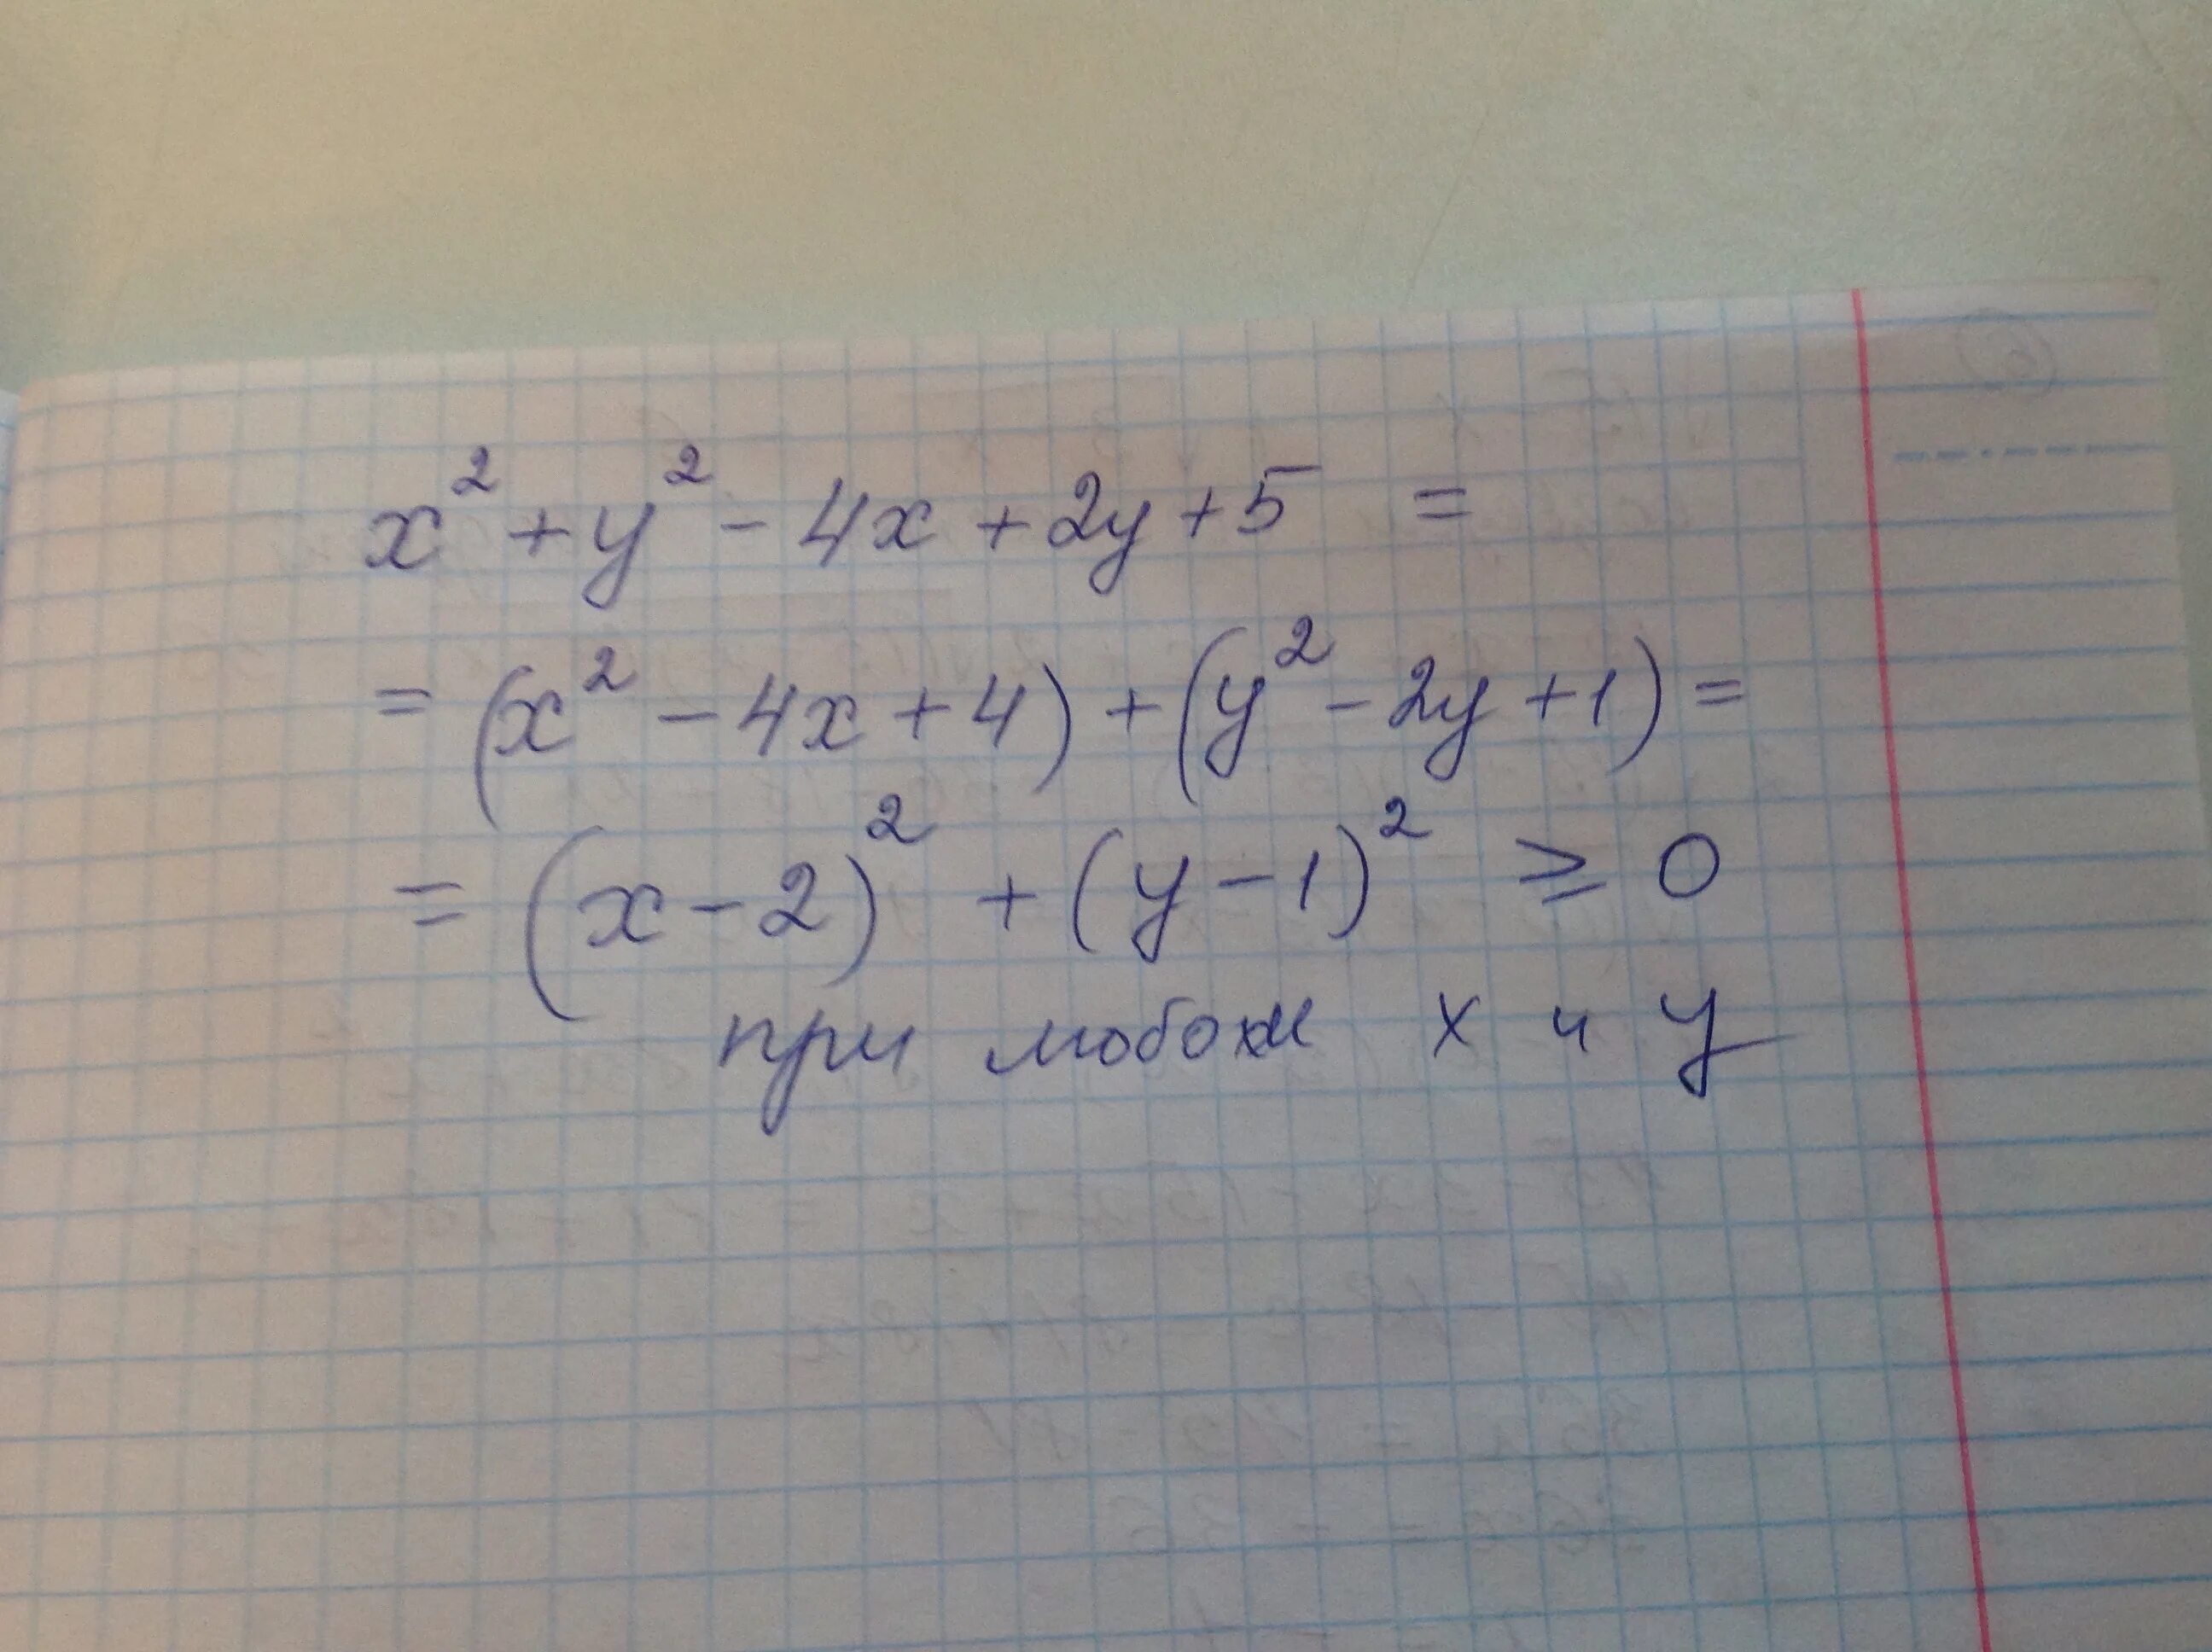 x² + y² - 4x + 2y + 5 =
= (x² - 4x + 4) + (y² - 2y + 1) =
= (x - 2)² + (y - 1)² ⩾ 0
при любом x и y